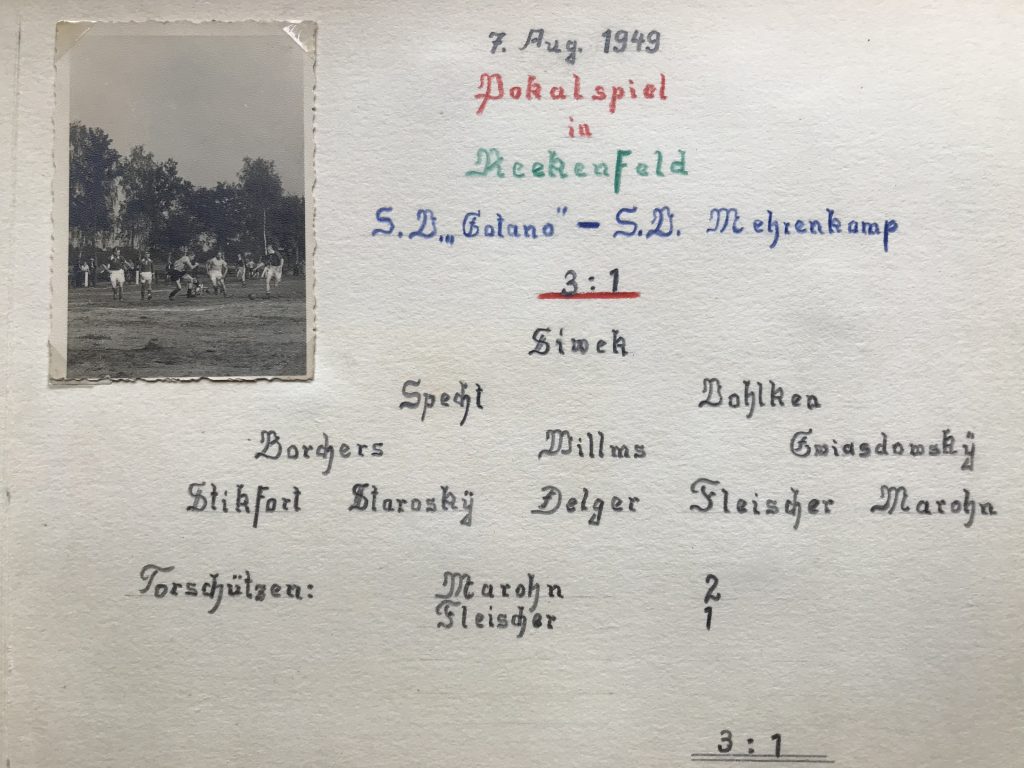 7. Aug. 1949
Pokalspiel
in
Reekenfeld
S.V. „Gotano" – S.V. Mehrenkamp
3:1
Siwek
Specht Vohlken
Borchers Willms Gwiasdowskÿ
Stikfort Staroskÿ Delger Fleischer Marohn
Torschützen: Marohn 2
Fleischer 1
3:1